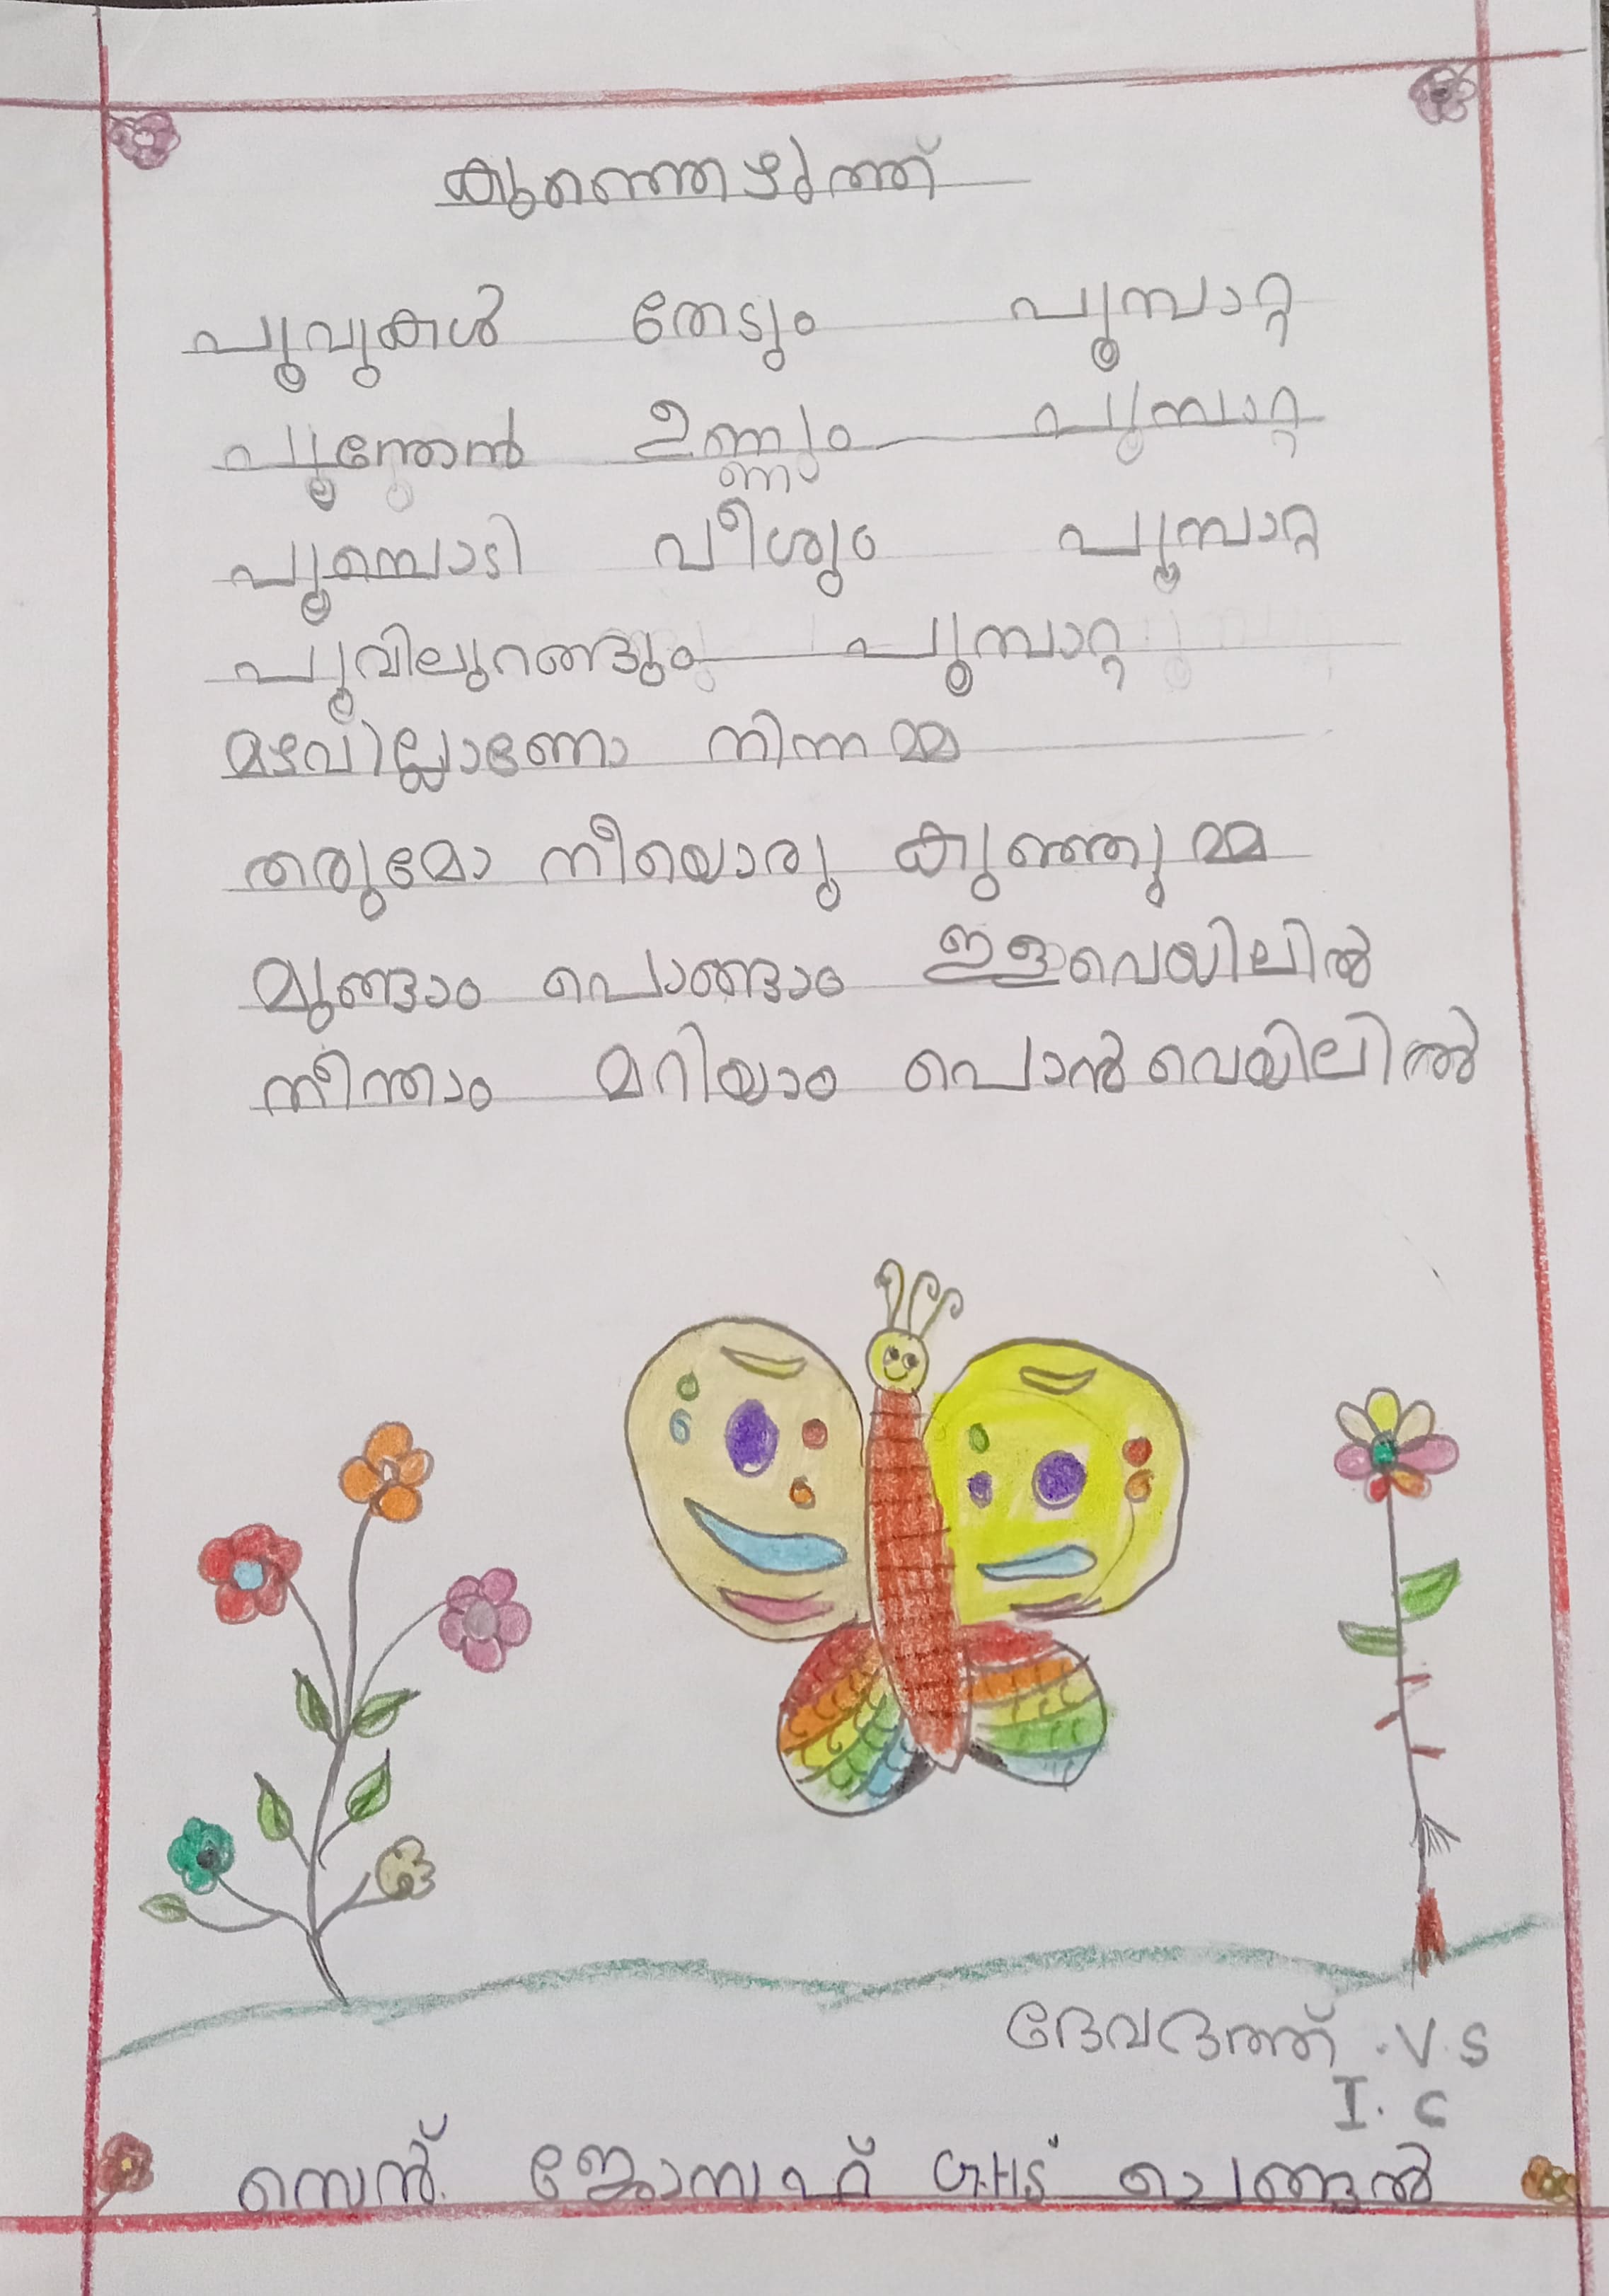 കുഞ്ഞെഴുത്ത്
പൂവുകൾ തേടും പൂമ്പാറ്റ
പൂന്തേൻ ഉണ്ണും പൂമ്പാറ്റ
പൂമ്പൊടി വീശും പൂമ്പാറ്റ
പൂവിലുറങ്ങും പൂമ്പാറ്റ
മഴവില്ലാണോ നിന്നമ്മ
തരുമോ നീയൊരു കുഞ്ഞുമ്മ
മുങ്ങാം പൊങ്ങാം ഇളവെയിലിൽ
നീന്താം മറിയാം പൊൻവെയിലിൽ
ദേവദത്ത് .V.S
I. C
സെൻ്. ജോസഫ് GHS ചെങ്ങൽ